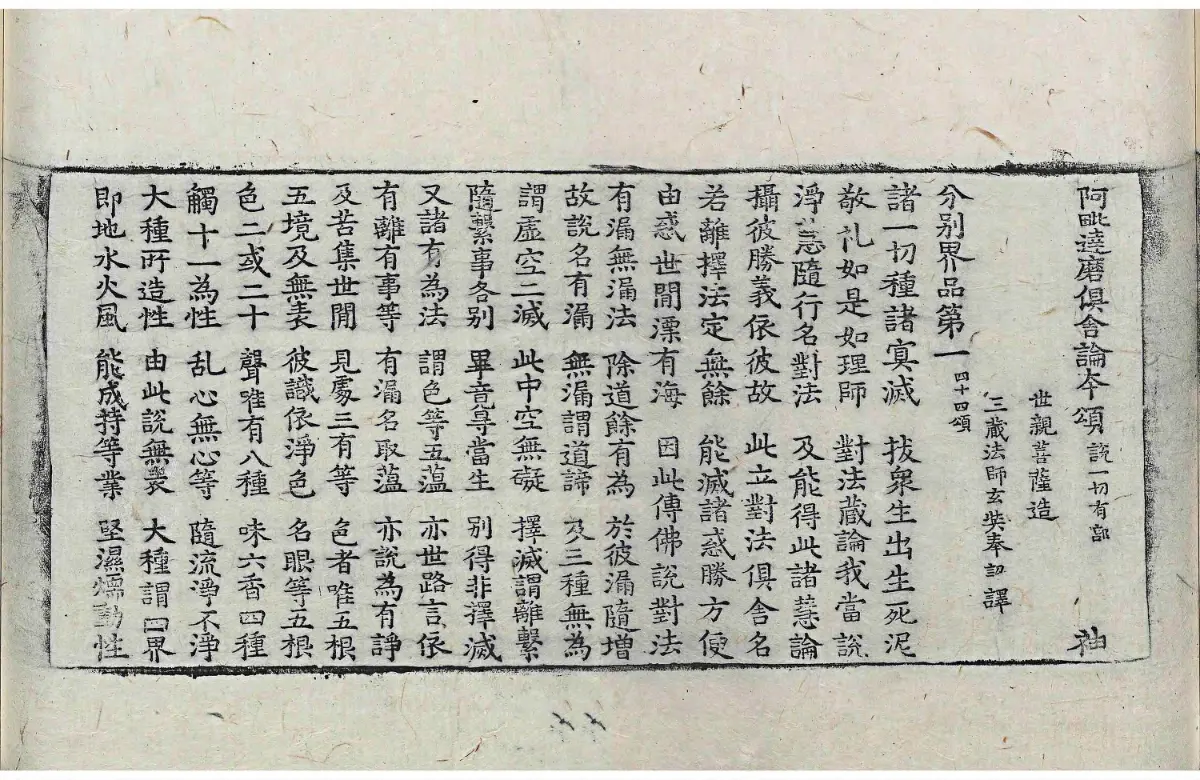 阿毗達磨俱舍論本頌 說一切有部 袖
世親菩薩造
三藏法師玄奘奉詔譯
分別界品第一 四十四頌
諸一切種諸冥滅 拔衆生出生死泥
敬礼如是如理師 對法藏論我當說
淨慧隨行名對法 及能得此諸慧論
攝彼勝義依彼故 此立對法俱舍名
若離擇法定無餘 能滅諸惑勝方便
由惑世間漂有海 因此傳佛說對法
有漏無漏法 除道餘有為 於彼漏隨增
故說名有漏 無漏謂道諦 及三種無為
謂虛空二滅 此中空無礙 擇滅謂離繫
隨繫事各別 畢竟㝵當生 別得非擇滅
又諸有為法 謂色等五蘊 亦世路言依
有離有事等 有漏名取蘊 亦說為有諍
及苦集世間 見處三有等 色者唯五根
五境及無表 彼識依淨色 名眼等五根
色二或二十 聲唯有八種 味六香四種
觸十一為性 乱心無心等 隨流淨不淨
大種所造性 由此說無表 大種謂四界
即地水火風 能成持等業 堅濕煖動性